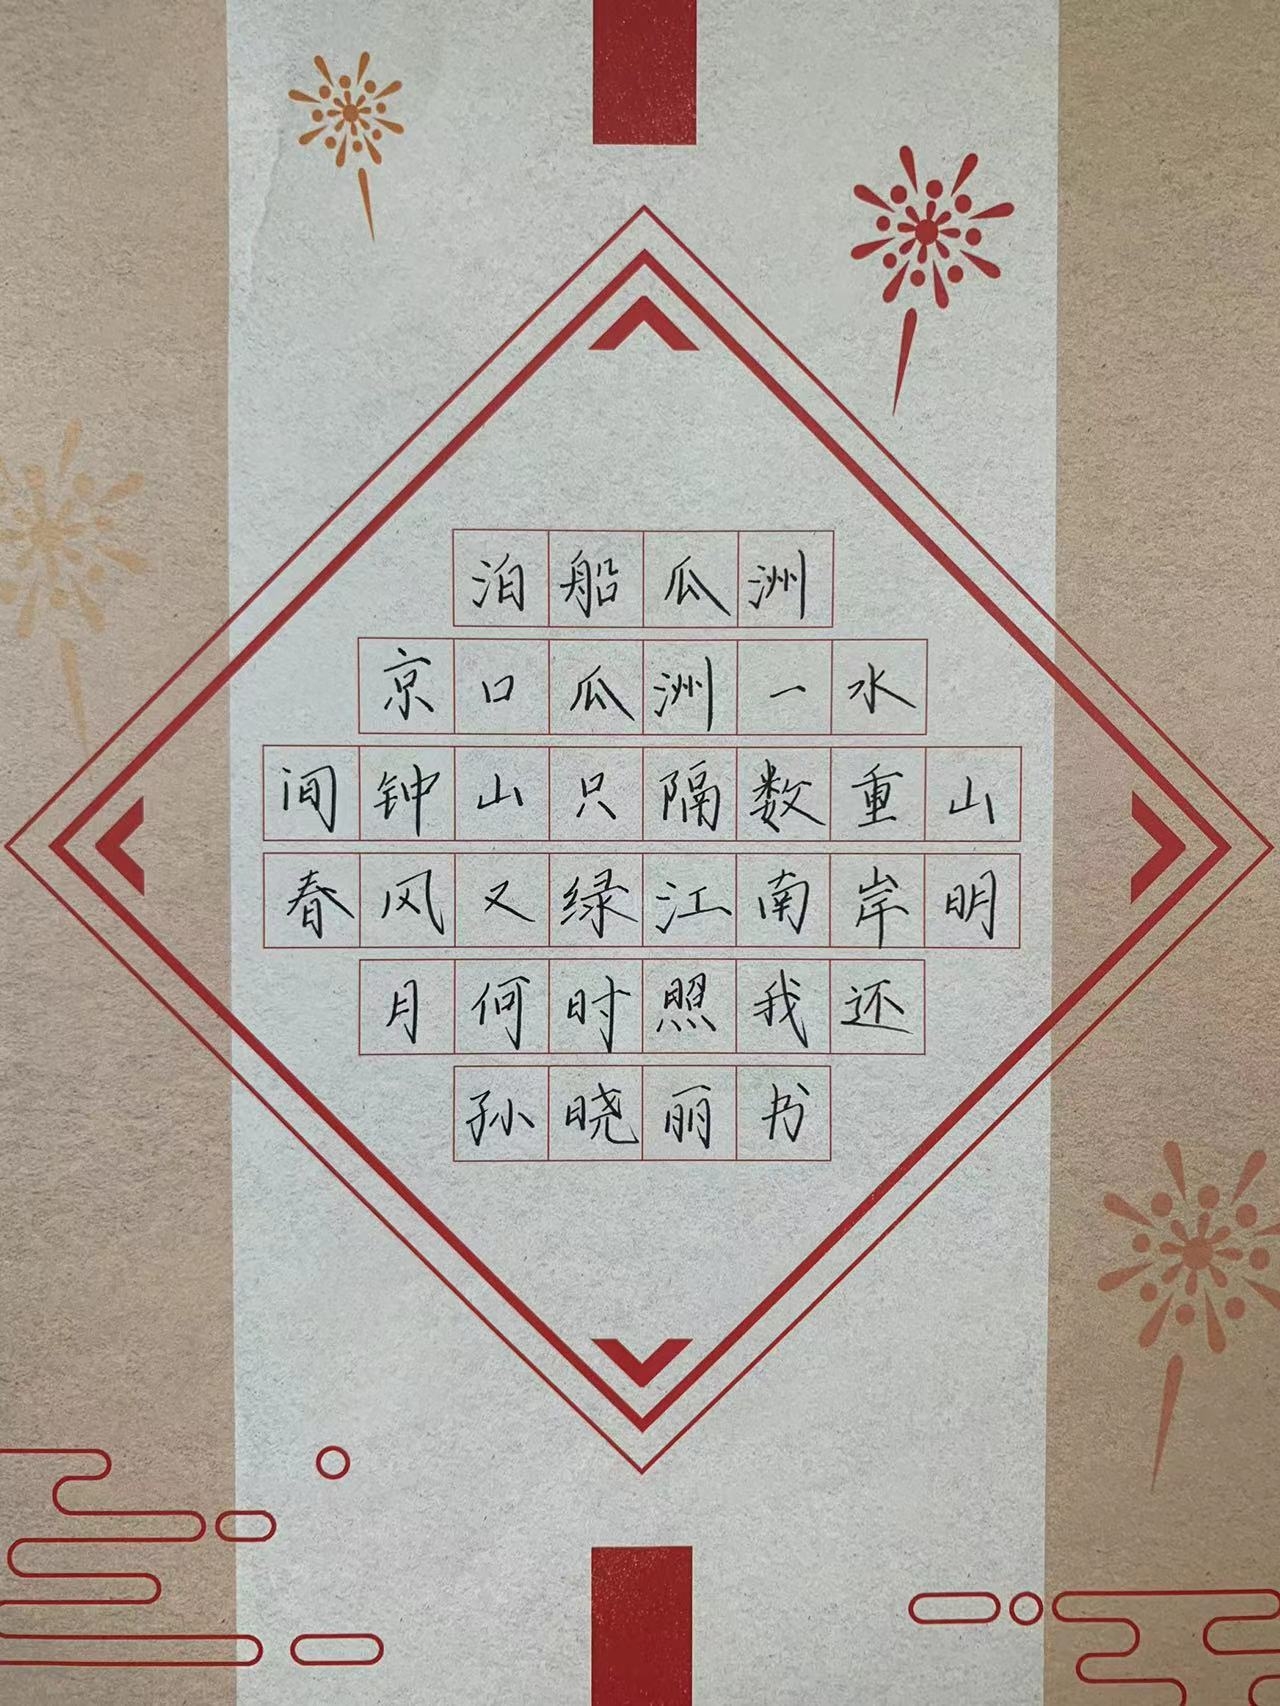 泊船瓜洲
京口瓜洲一水
间钟山只隔数重山
春风又绿江南岸明
月何时照我还
孙晓丽书